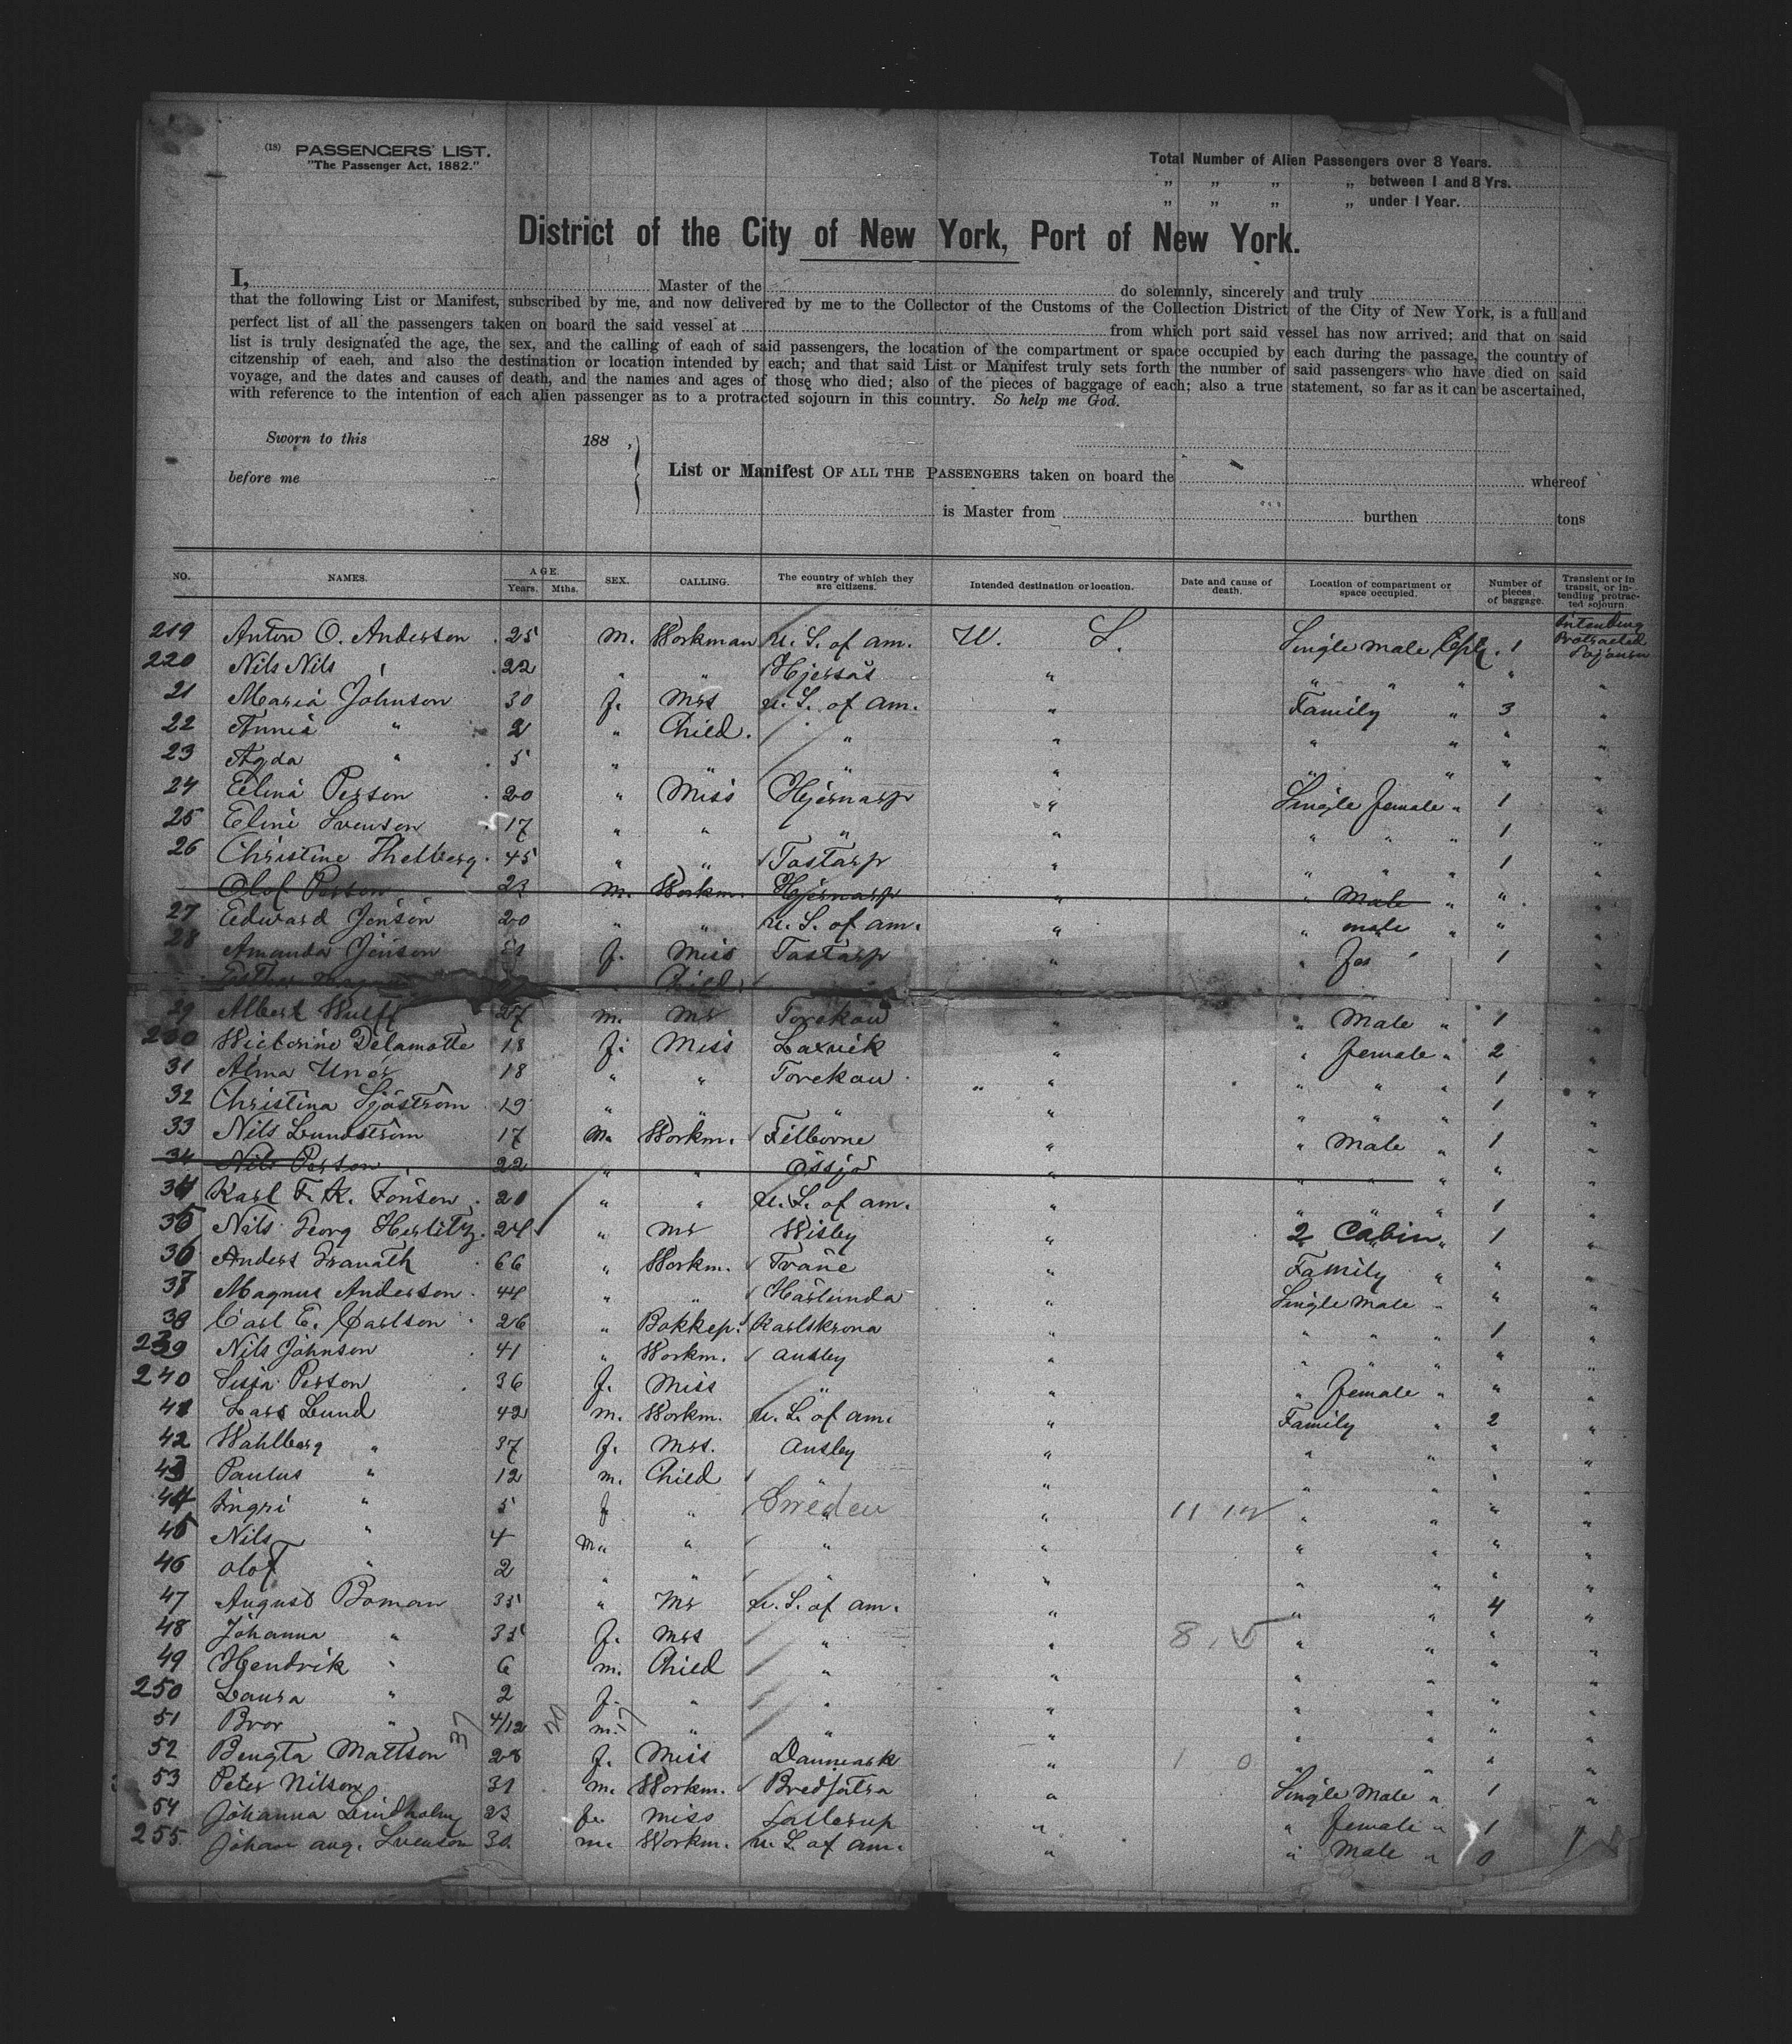 (18) PASSENGERS' LIST.
"The Passenger Act, 1882."
Total Number of Alien Passengers over 8 Years.
" " " " between 1 and 8 Yrs.
" " " " under 1 Year.
District of the City of New York, Port of New York.
I, Master of the do solemnly, sincerely and truly
that the following List or Manifest, subscribed by me, and now delivered by me to the Collector of the Customs of the Collection District of the City of New York, is a full and
perfect list of all the passengers taken on board the said vessel at from which port said vessel has now arrived; and that on said
list is truly designated the age, the sex, and the calling of each of said passengers, the location of the compartment or space occupied by each during the passage, the country of
citzenship of each, and also the destination or location intended by each; and that said List or Manifest truly sets forth the number of said passengers who have died on said
voyage, and the dates and causes of death, and the names and ages of those who died; also of the pieces of baggage of each; also a true statement, so far as it can be ascertained,
with reference to the intention of each alien passenger as to a protracted sojourn in this country. So help me God.
Sworn to this 188 ,
before me
List or Manifest OF ALL THE PASSENGERS taken on board the whereof
is Master from burthen tons
NO. NAMES. AGE. Years. Mths. SEX. CALLING. The country of which they are citizens. Intended destination or location. Date and cause of death. Location of compartment or space occupied. Number of pieces of baggage. Transient or in transit, or intending protracted sojourn
219 Anton O. Anderson 25 m. Workman U. S. of am. U. S. Single male Cplt. 1 Intending Protracted Sojourn
220 Nils Nils 22 " " Hjersås " " " " " "
21 Maria Johnson 30 f. Mrs U. S. of am. " Family " 3 "
22 Annia " 2 " Child. " " " " " "
23 Agda " 5 " " " " " " " "
24 Elina Person 20 " Miss Hjernarp " Single female " 1 "
25 Eline Svenson 17 " " " " " " " 1 "
26 Christine Thelberg 45 " " Tostarp " " " " 1 "
Olof Person 23 m. Workm. Hjernarp " " Male " "
27 Edward Jönson 20 " " U. S. of am. " " male " " "
28 Amanda Jönson f. Miss Tostarp " " 1 "
Child
29 Albert Wulff 27 m. Mr Torekow " " Male " 1 "
230 Wictorine Delamotte 18 f. Miss Laxvik " " female " 2 "
31 Alma 18 " " Torekow " " " " 1 "
32 Christina Sjöström 19 " " " " " " " 1 "
33 Nils Lundström 17 m. Workm. Filborne " " Male " 1 "
34 Nils Person 22 " " Össjö " " " " " "
34 Karl F. K. Jönson 20 " " U. S. of am. " " " " 1 "
35 Nils Georg Herlitz 24 " Mr Wisby " 2 Cabin " 1 "
36 Anders Granath 66 " Workm. Träne " Family " " "
37 Magnus Anderson 44 " " Härlunda " Single Male " " "
38 Carl E. Carlson 26 " Bokkep. Karlskrona " " " " 1 "
239 Nils Johnson 41 " Workm. Ausby " " " " " "
240 Sissa Person 36 f. Miss " " " female " " "
41 Lars Lund 42 m. Workm. U. S. of am. " Family " 2 "
42 Wahlberg " 37 f. Mrs. Ausby " " " " "
43 Paulus " 12 m. Child " " " " " "
44 Ingri " 5 f " Sweden " 11 " " " "
45 Nils " 4 m. " " " " " " "
46 Olof " 2 " " " " " " " "
47 August Boman 35 " Mr U. S. of am. " " " 4 "
48 Johanna " 35 f. Mrs " " 8 . 5 " " " "
49 Hendrik " 6 m. Child " " " " " "
250 Laura " 2 f. " " " " " " "
51 Bror " 37 4/12 m. " " " " " " "
52 Bengta Mattson 28 f. Miss Danmark " 1 0 " " " "
53 Peter Nilson 31 m. Workm. Bredsätra " Single Male " 1 "
54 Johanna Lindholm 23 f. Miss " " female " 1
255 Johan Aug. Svenson 30 m. Workm. U. S. of am. " " Male " 0